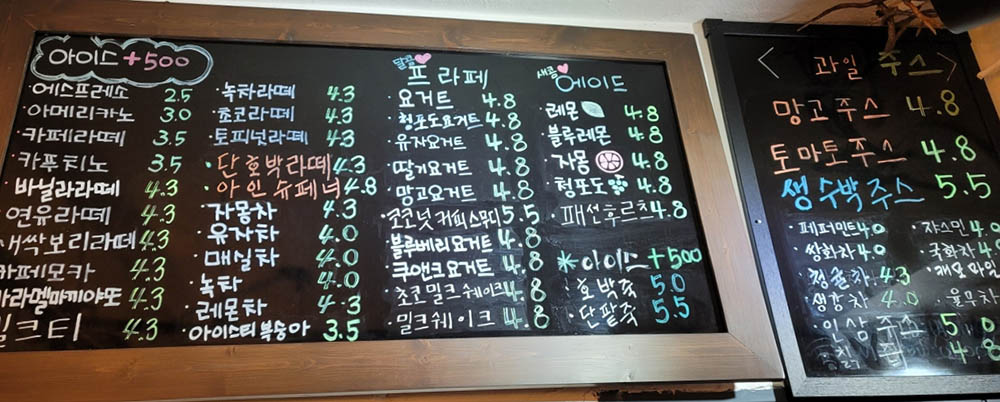 아이스 +500
에스프레소 2.5
아메리카노 3.0
카페라떼 3.5
카푸치노 3.5
바닐라라떼 4.3
연유라떼 4.3
새싹보리라떼 4.3
카페모카 4.3
카라멜마끼야또 4.3
밀크티 4.3
녹차라떼 4.3
초코라떼 4.3
토피넛라떼 4.3
단호박라떼 4.3
아인슈페너 4.8
자몽차 4.3
유자차 4.0
매실차 4.0
녹차 4.0
레몬차 4.3
아이스티 복숭아 3.5
달콤 프라페
요거트 4.8
청포도요거트 4.8
유자요거트 4.8
딸기요거트 4.8
망고요거트 4.8
코코넛커피스무디 5.5
블루베리요거트 4.8
쿠앤크요거트 4.8
초코밀크쉐이크 4.8
밀크쉐이크 4.8
새콤 에이드
레몬 4.8
블루레몬 4.8
자몽 4.8
청포도 4.8
패션후르츠 4.8
*아이스 +500
호박죽 5.0
단팥죽 5.5
< 과일 주스 >
망고주스 4.8
토마토주스 4.8
생수박주스 5.5
페퍼민트 4.0
쌍화차 4.0
청귤차 4.3
생강차 4.0
자스민 4.0
국화차
율무차
인삼주스 5.0
칡즙 4.8